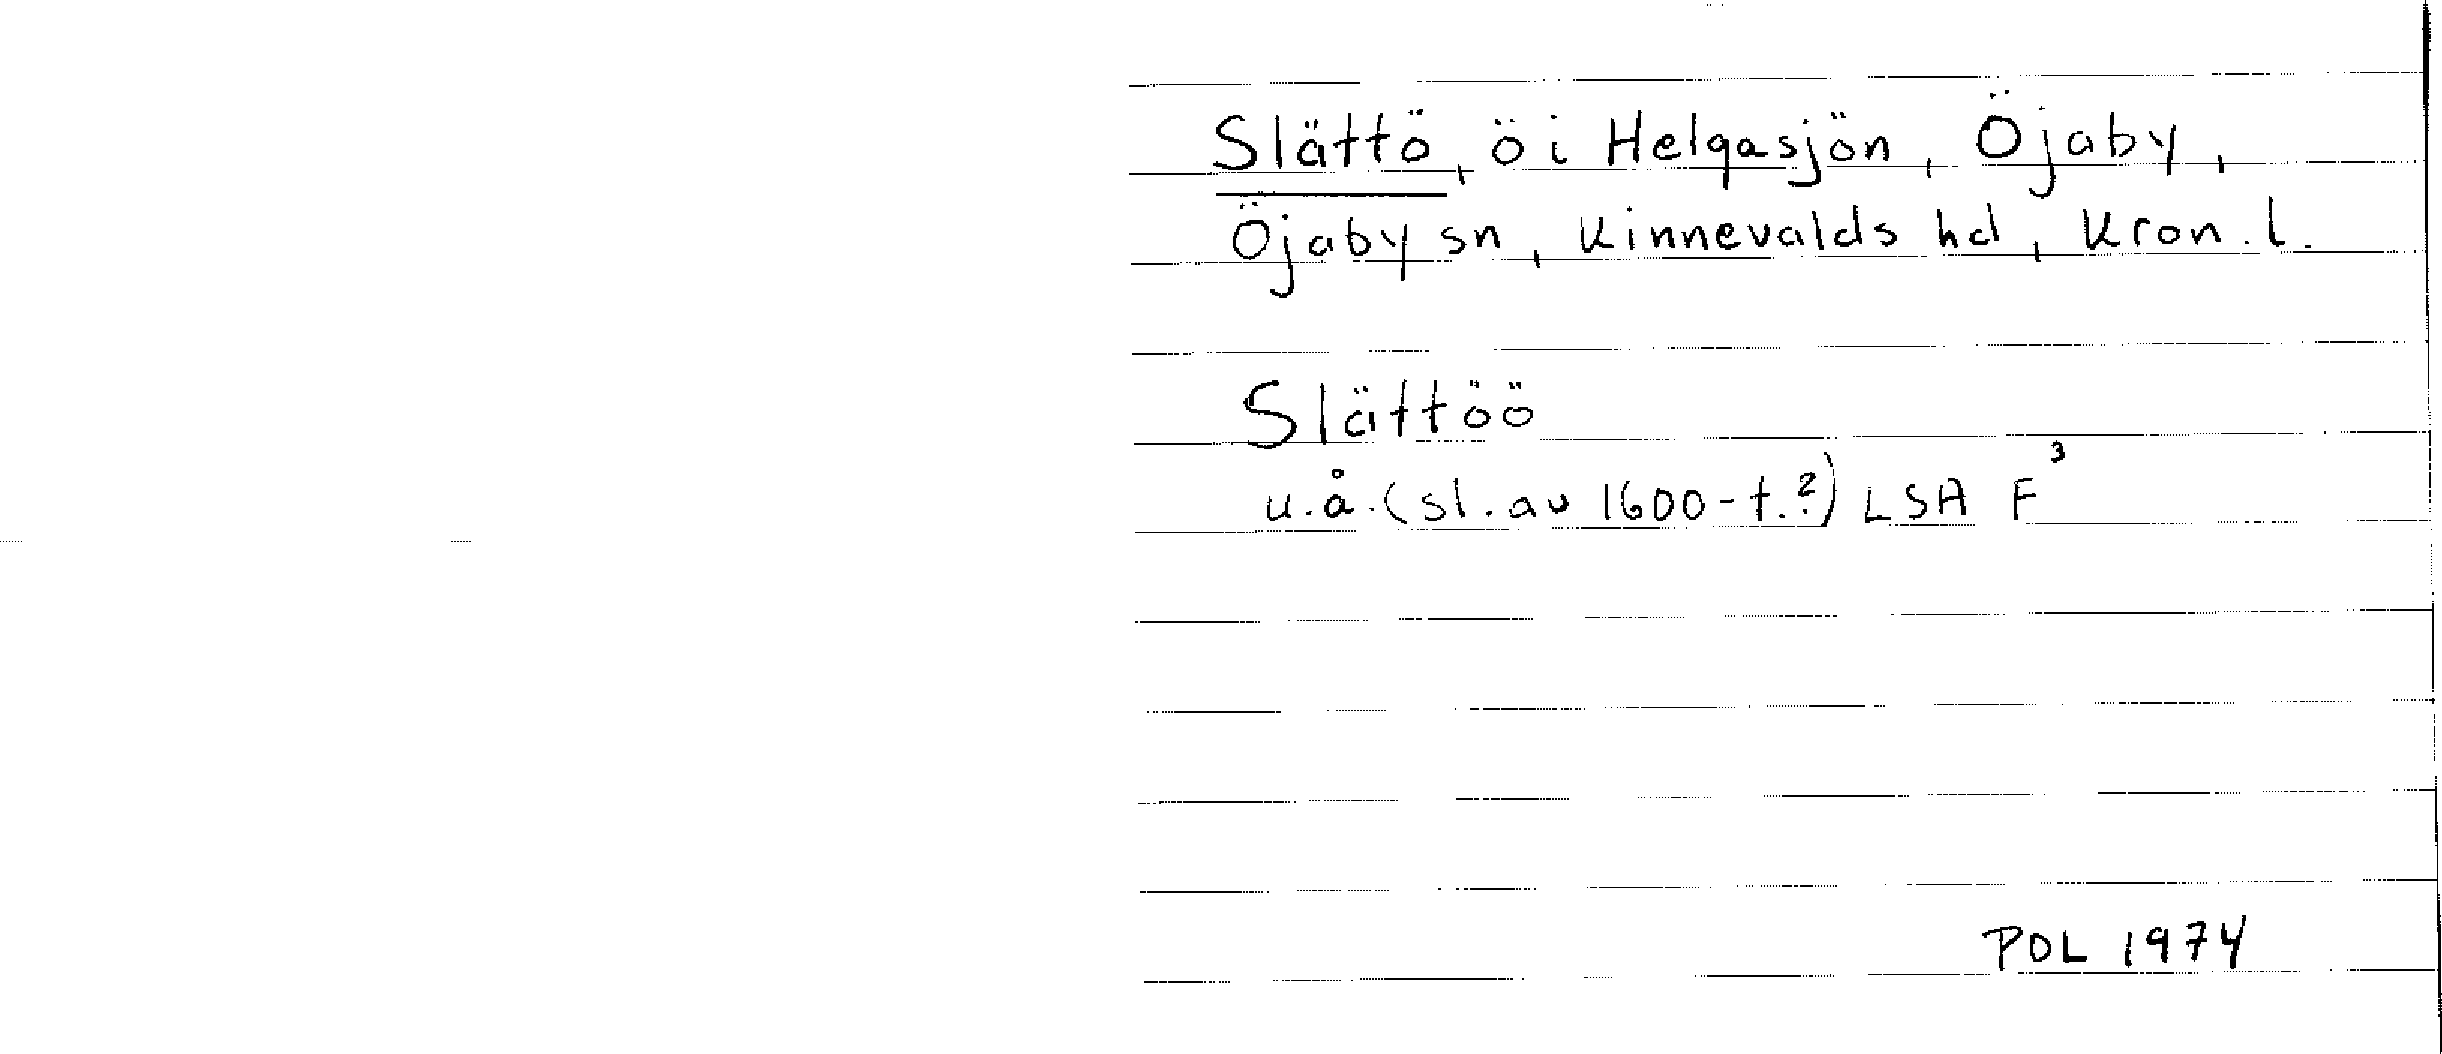 Slättö, ö i Helgasjön, Öjaby,
Öjaby sn, Kinnevalds hd, Kron. l.
Slättöö
u.å. (sl. av 1600-t.?) LSA F³
POL 1974